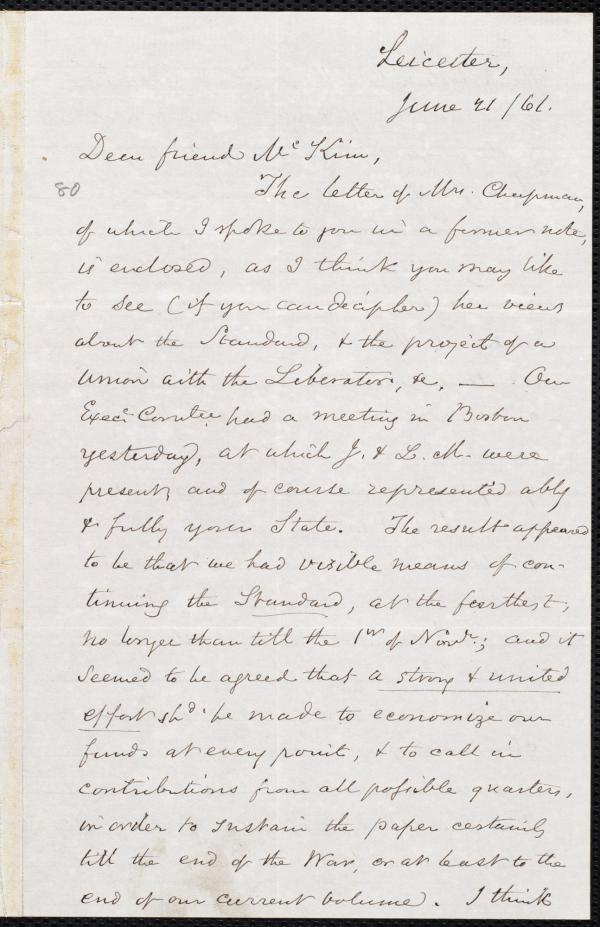 Leicester,
June 21/61.
Dear friend McKim,
80
The letter of Mrs. Chapman,
of which I spoke to you in a former note,
is enclosed, as I think you may like
to see (if you can decipher) her views
about the Standard, & the project of a
union with the Liberator, &c. — Our
Exec. Comtee. had a meeting in Boston
yesterday, at which J. & L. M. were
present, and of course represented ably
& fully your State. The result appeared
to be that we had visible means of con-
tinuing the Standard, at the farthest,
no longer than till the 1st of Novr.; and it
seemed to be agreed that a strong & united
effort shd. be made to economize our
funds at every point, & to call in
contributions from all possible quarters,
in order to sustain the paper certainly
till the end of the War, or at least to the
end of our current volume. I think